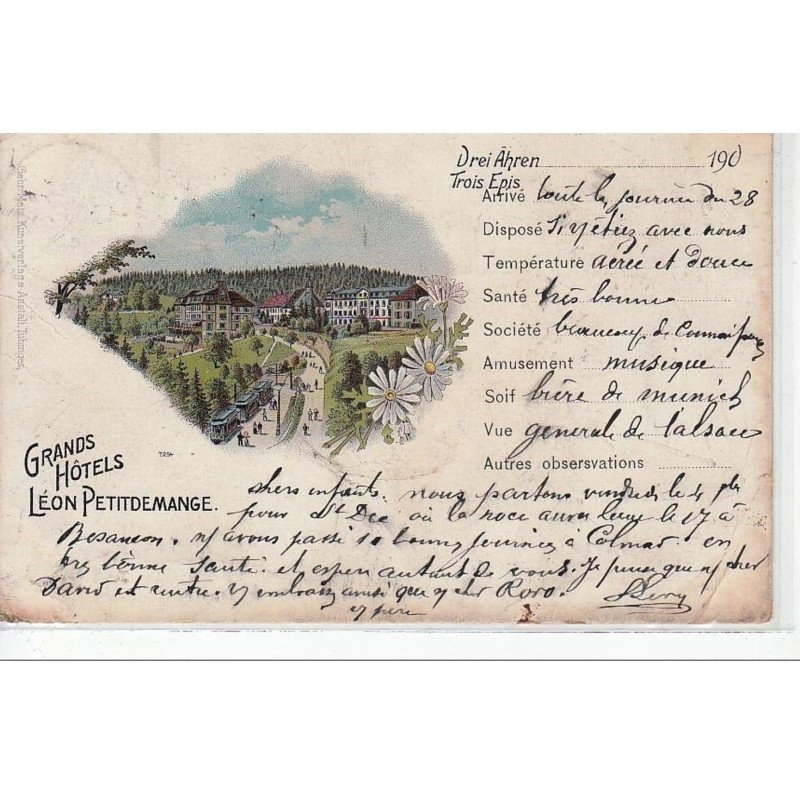 Drei Ähren 190
Trois Epis
Arrivé toute la journée du 28
Disposé Si vs étiez avec nous
Température aérée et douce
Santé très bonne
Société beaucoup de
Amusement musique
Soif bière de munich
Vue generale de l'alsace
Autres obsersvations
GRANDS
HÔTELS
LÉON PETITDEMANGE.
7254
chers enfants. nous partons vendredi le 4
pour St Dié où la noce aura lieu le 17 à
Besançon. ns avons passé bonnes journées à Colmar en
très bonne santé et espère autant de vous. Je pense que cher
David est rentré. embrasse ainsi que cher
Levy